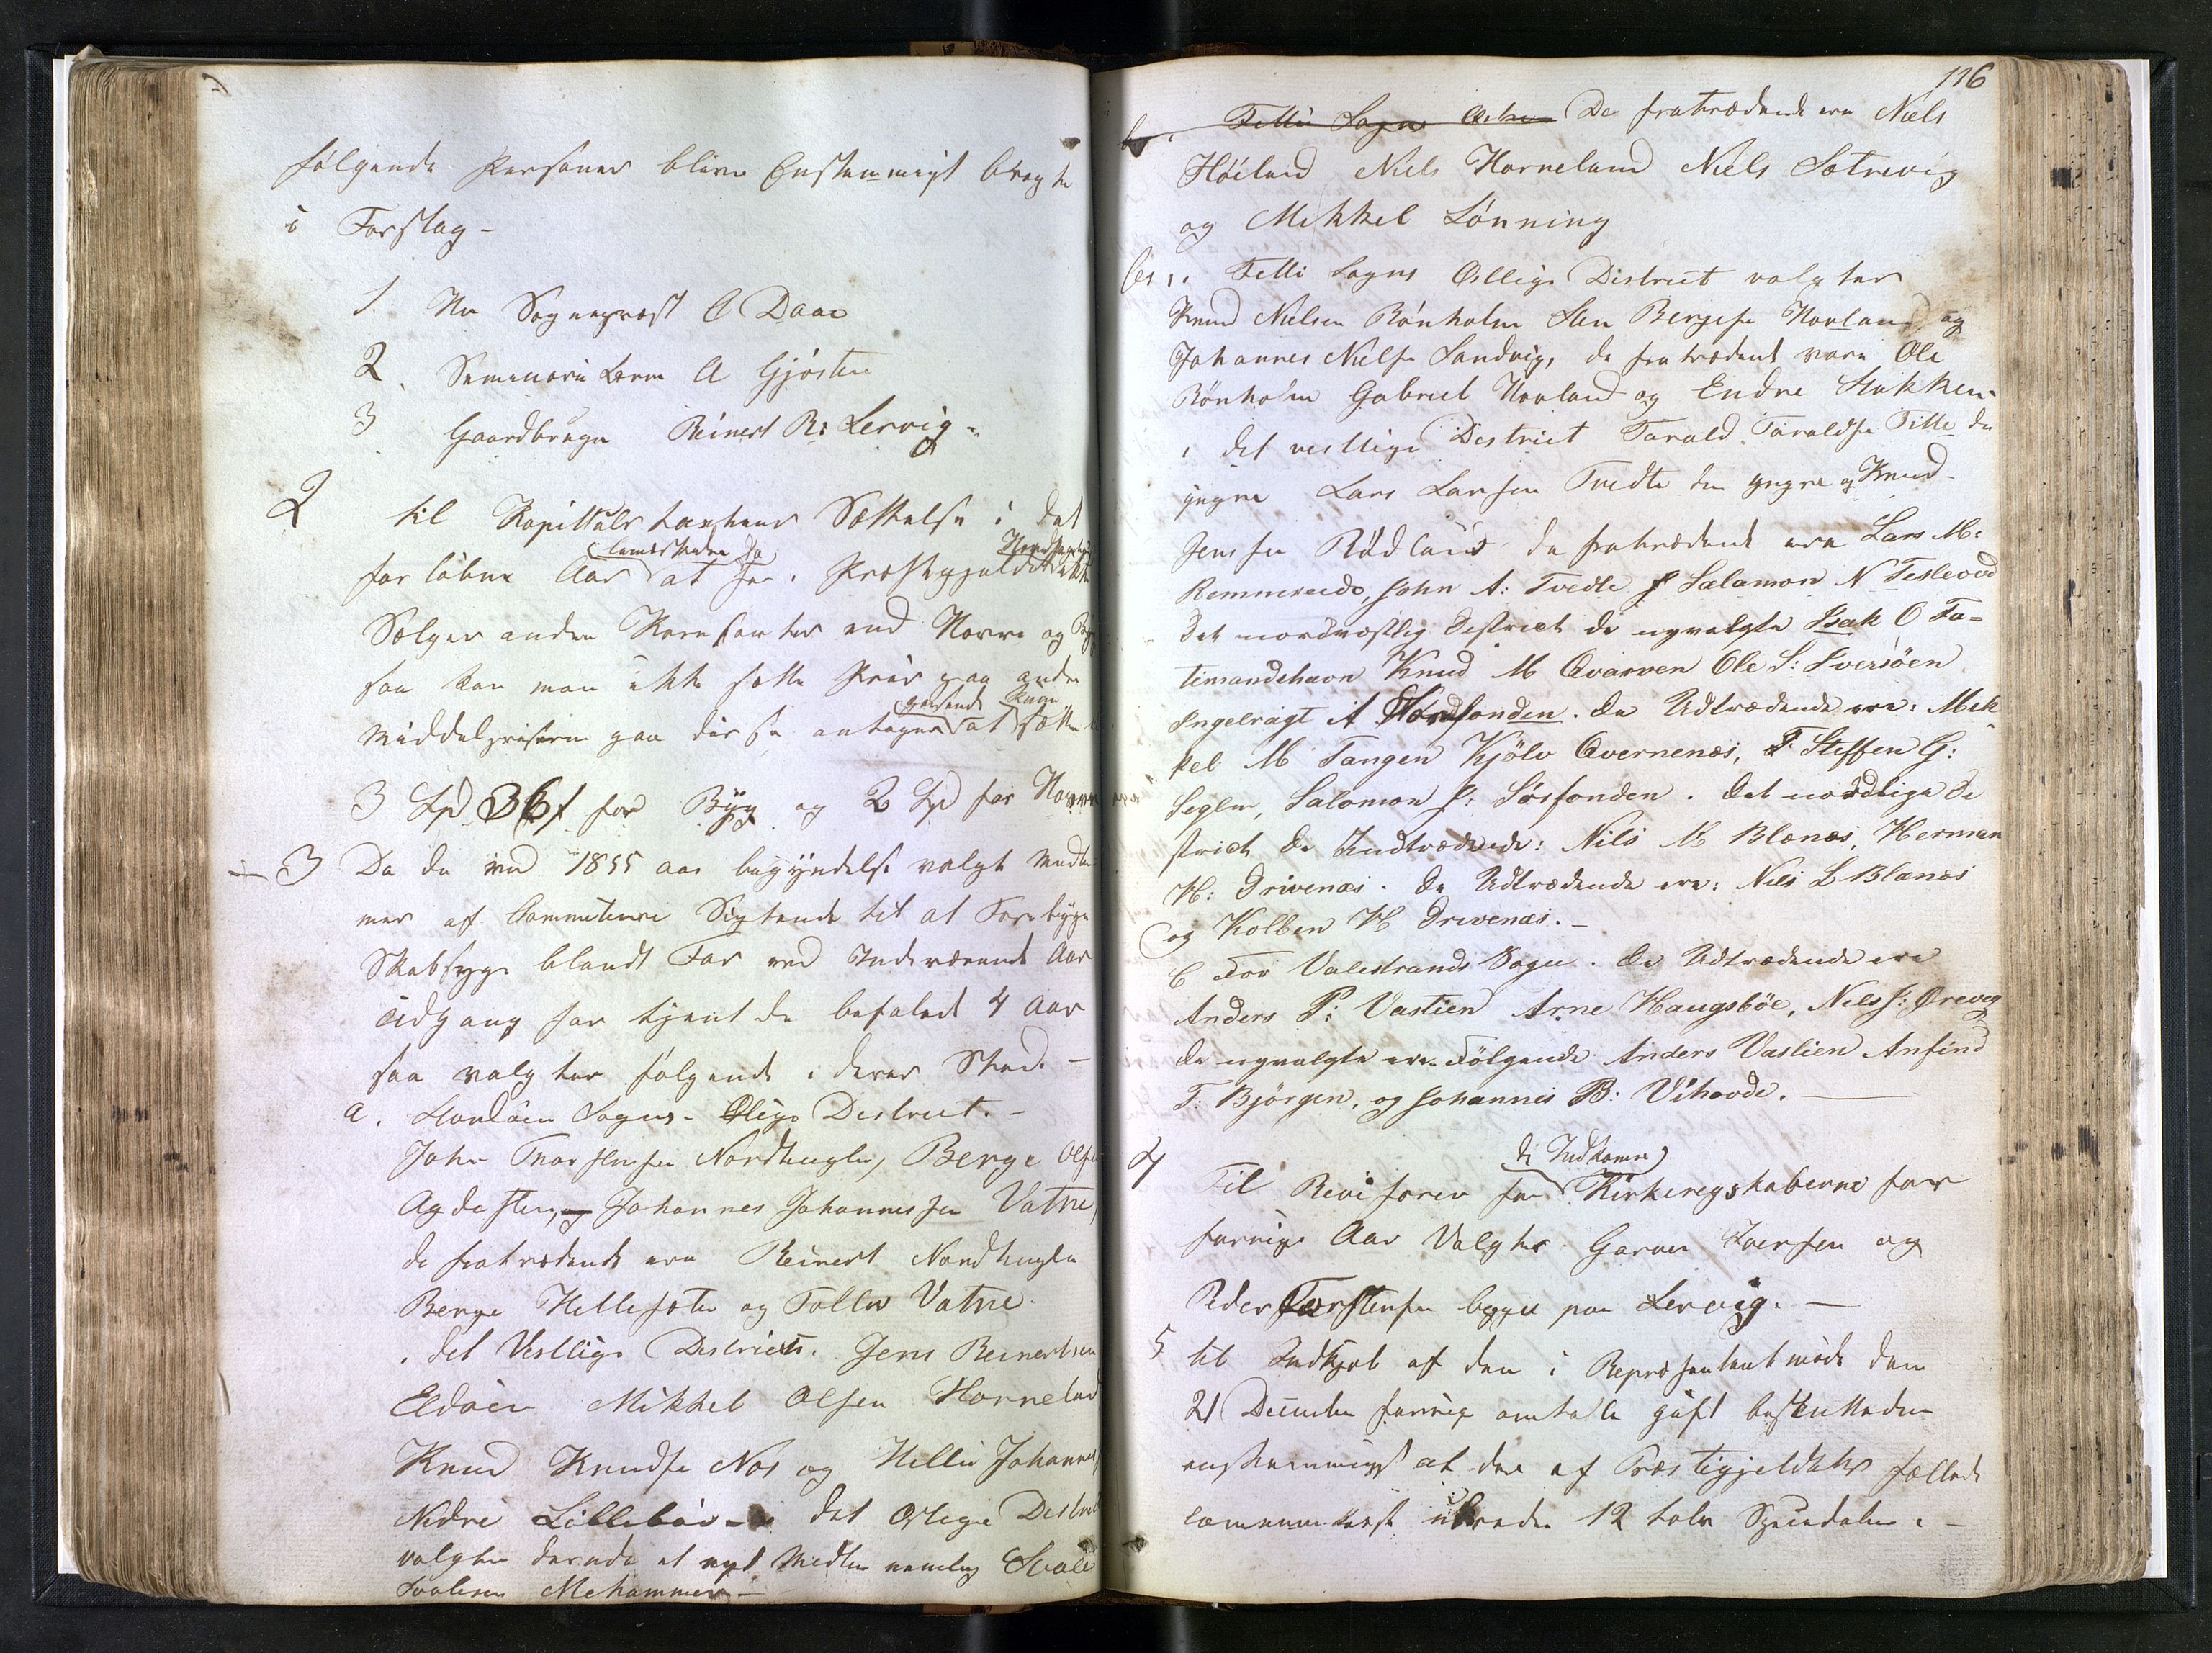 følgende Personer blive Enstemmigt bragte
i Forslag -
1. Hr Sognepræst C Daae
2. Seminarie Lærer A Gjøsten
3 Gaardbruger Reinert R: Lervig -
2 til Kapittelstaxtens Sættelse i det
forløbne Aar (bemærkede da) at her i Præstegjeldet ikke
Sælges anden Kornsorter end Havre og Byg
saa kan man ikke sætte Priis paa andre
Middelprisern paa disse antages (gjeldende) at sætte
3 Spd 36 s for Byg og 2 Spd for Havre
3 Da de ved 1855 aars begyndelse valgte Medlem-
mer af Commitenre Sigtende til at Forebygge
Skabsyge blandt Faar ved Indeværende Aars
Udgang har tjent de befalede 4 Aar
saa valgtes følgende i deres Sted. -
a. Stordøen Sogns Østlige District. -
John Thorstensen Nordhuglen, Berge Olsen
Agdesten, Johannes Johannessen Vatne,
de fratrædende ere Reinert Nordhuglen
Berge Hellesøten og Tollev Vatne
i det Vestlige District. Jens Reinertsen
Eldøen Mikkel Olsen Horneland
Knud Knudsen Nøs og Hellie Johannes
Nedre Lillebøe - i det Østlige District
valgtes desuden et nyt Medlem nemlig Svale
Svalesen Mehammer -
116
b. Fittie Sogns Østre De fratrædende ere Niels
Høiland Niels Horneland Niels Sætrevig
og Mikkel Lønning
b, i Fitti Sogns Østlige District valgtes
Knud Nielsen Rønholm Sten Bergesen Hovland og
Johannes Nielsen Sandvig, de fratrædende vare Ole
Rønholm Gabriel Hovland og Endre Stokken.
i det vestlige District Tarald Taraldsen Titte den
yngre Lars Larsen Tvedte den yngre og Knud
Jensen Rødland de fratrædende ere Lars M:
Remmereide, John A: Tvedte Salamon N Teslevod
Det nordvestlig District de nyvalgte Isak O Fa-
timandshavn Knud M Qvarven Ole S: Iversøen
Ingebrigt A Nordfonden. De Udtrædende ere: Mik-
kel M Tangen Kjølv Qvernenæs, Steffen G:
Seglen, Salomon J: Sørfonden. Det nordlige Di
strict De Indtrædende: Nils M Blænæs, Herman
H: Drivenæs. De Udtrædende ere: Nils L Blænæs
og Kolben H Drivenæs. -
C For Valestrands Sogn. De Udtrædende ere
Anders P: Vastien Arne Haugsbøe, Nels J: Ørevig
de nyvalgte ere Følgende Anders Vaslien Anfind
T: Bjørgen, og Johannes B: Vihovde.
4 Til Revisorer for (de Indkomne) Kirkeregnskaberne for
forrige Aar Valgtes Garver Iversen og
Peder Torstensen begge paa Lervig. -
5 til Indkjøb af den i Repræsentantmøde den
21 December forrige omtalte gift besluttedes
eenstemmigt at der af Præstegjeldets fælleds
commune kasse udredes 12 tolv Speciedaler. -